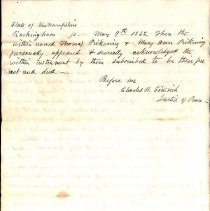 State of Newhampshire
Rockingham ss May 9th 1832. Then the
within named Thomas Pickering & Mary Ann Pickering
personally appeared & severally acknowledged the
within instrument by them subscribed to be their free
act and deed —
Before me
Charles W.
Justice of Peace